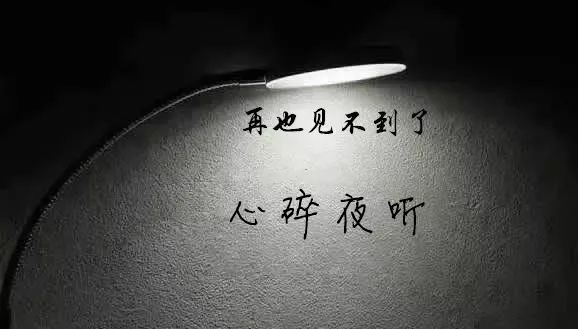 再也见不到了
心碎夜听